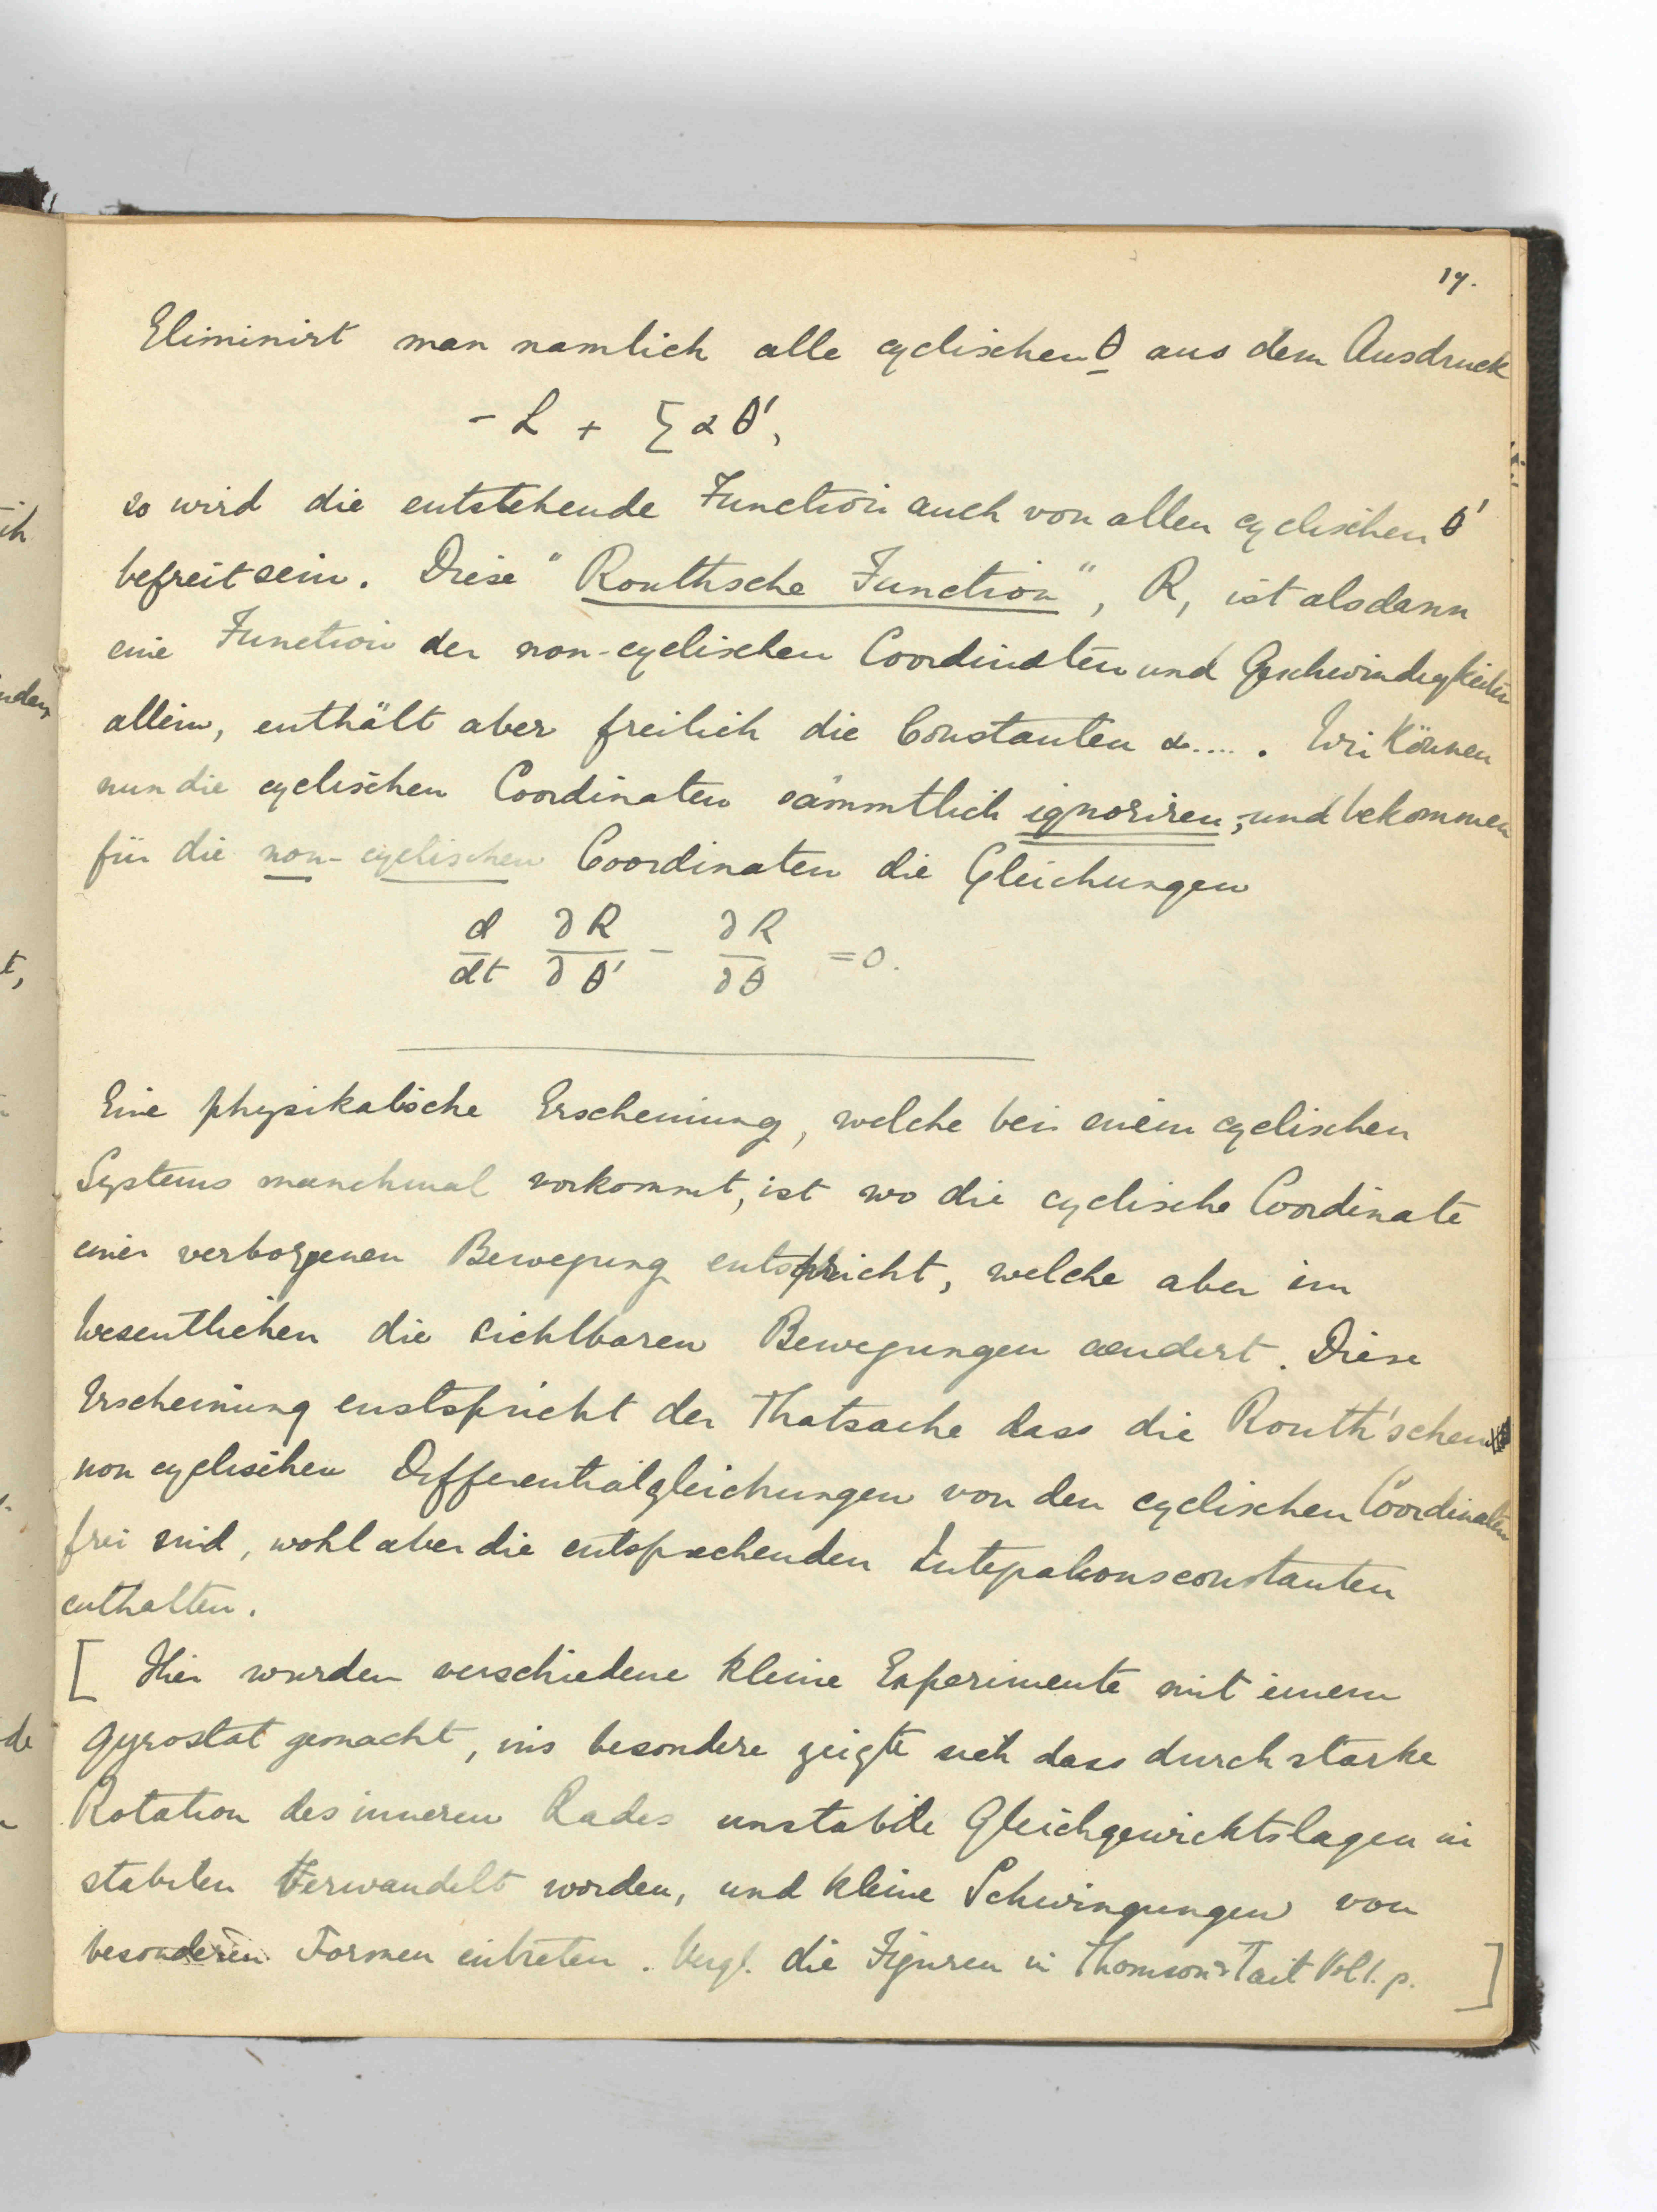 17.
Eliminirt man namlich alle cyclischen θ aus dem Ausdruck
- L + Σ α θ',
so wird die entstehende Function auch von allen cyclischen θ'
befreit sein. Diese "Routhsche Function", R, ist alsdann
eine Function der non-cyclischen Coordinaten und Geschwindigkeiten
allein, enthält aber freilich die Constanten α..... . Wir können
nun die cyclischen Coordinaten sämmtlich ignoriren, und bekommen
für die non-cyclischen Coordinaten die Gleichungen
d/dt ∂R/∂θ' - ∂R/∂θ = 0.
Eine physikalische Erscheinung, welche bei einem cyclischen
Systems manchmal vorkommt, ist wo die cyclische Coordinate
einer verborgenen Bewegung entspricht, welche aber im
wesentlichen die sichtbaren Bewegungen aendert. Diese
Erscheinung enstspricht der Thatsache dass die Routh'schen
non cyclischen Differentialgleichungen von den cyclischen Coordinaten
frei sind, wohl aber die entsprechenden Integrationsconstanten
enthalten.
[ Hier wurden verschiedene kleine Experimente mit einem
Gyrostat gemacht, ins besondere zeigte sich dass durch starke
Rotation des inneren Rades unstabile Gleichgewichtslagen in
stabilen verwandelt worden, und kleine Schwingungen von
besonderen Formen eintreten. Vergl. die Figuren in Thomson & Tait Vol 1. p. ]
ih
t,
de